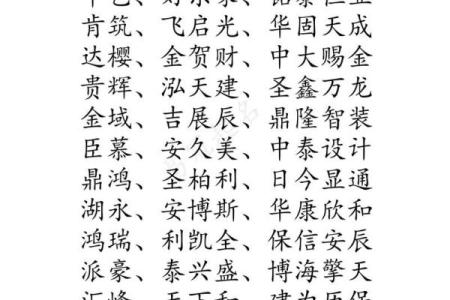 肯筑、飞启光、华固天成
达樱、金贺财、中大赐金
贵辉、泓天建、圣鑫万龙
金域、吉展辰、鼎隆智装
臣慕、安久美、中泰设计
鼎鸿、圣柏利、日今显通
湖永、安博斯、华康欣和
鸿瑞、利凯全、保信安辰
派豪、泰兴盛、博海擎天